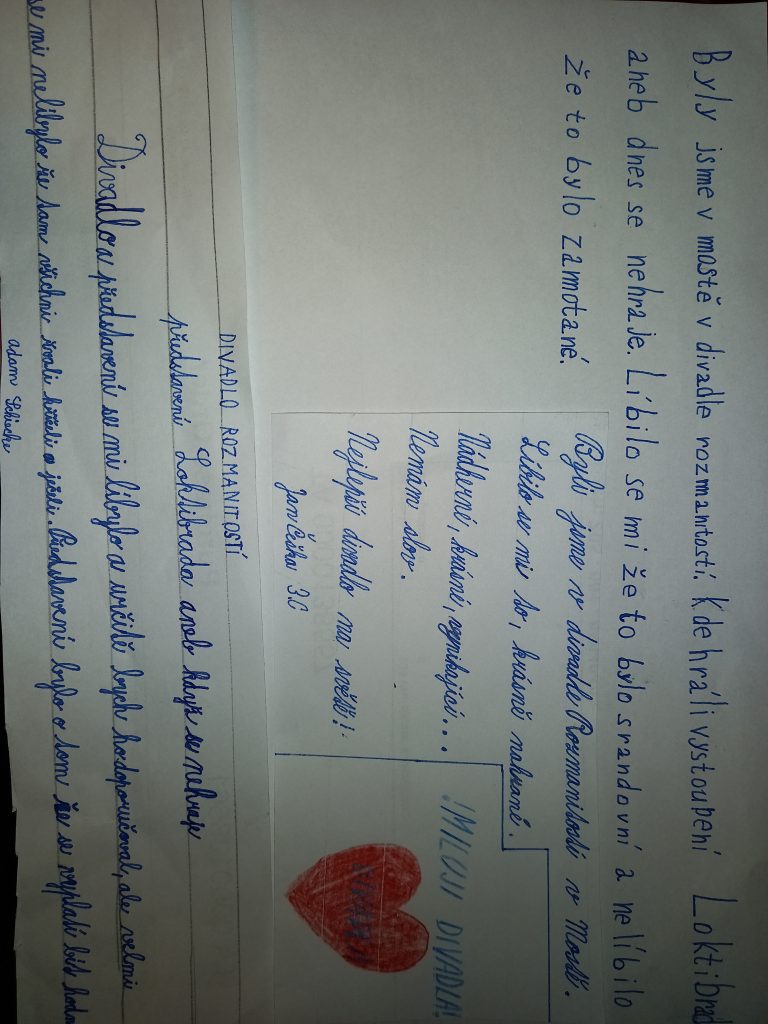 Byly jsme v mostě v divadle rozmanitostí. Kde hráli vystoupení Loktibrad
aneb dnes se nehraje. Líbilo se mi že to bylo srandovní a nelíbilo
že to bylo zamotané.
Byli jsme v divadle Rozmanitosti v Mostě.
Líbilo se mi to, krásně nahrané.
Nádherné, krásné, vynikající...
Nemám slov.
Nejlepší divadlo na světě!
Jan Češka 3.C
!MILUJI DIVADLA!
DIVADLO ROZMANITOSTÍ
představení Loktibrada aneb když se nehraje
Divadlo a představení se mi líbylo a určitě bych hodoporučoval, ale velmi
se mi nelíbylo že tam všichni řvali křičeli a ječeli. Představení bylo o tom že se vyplatí být hodn
adam